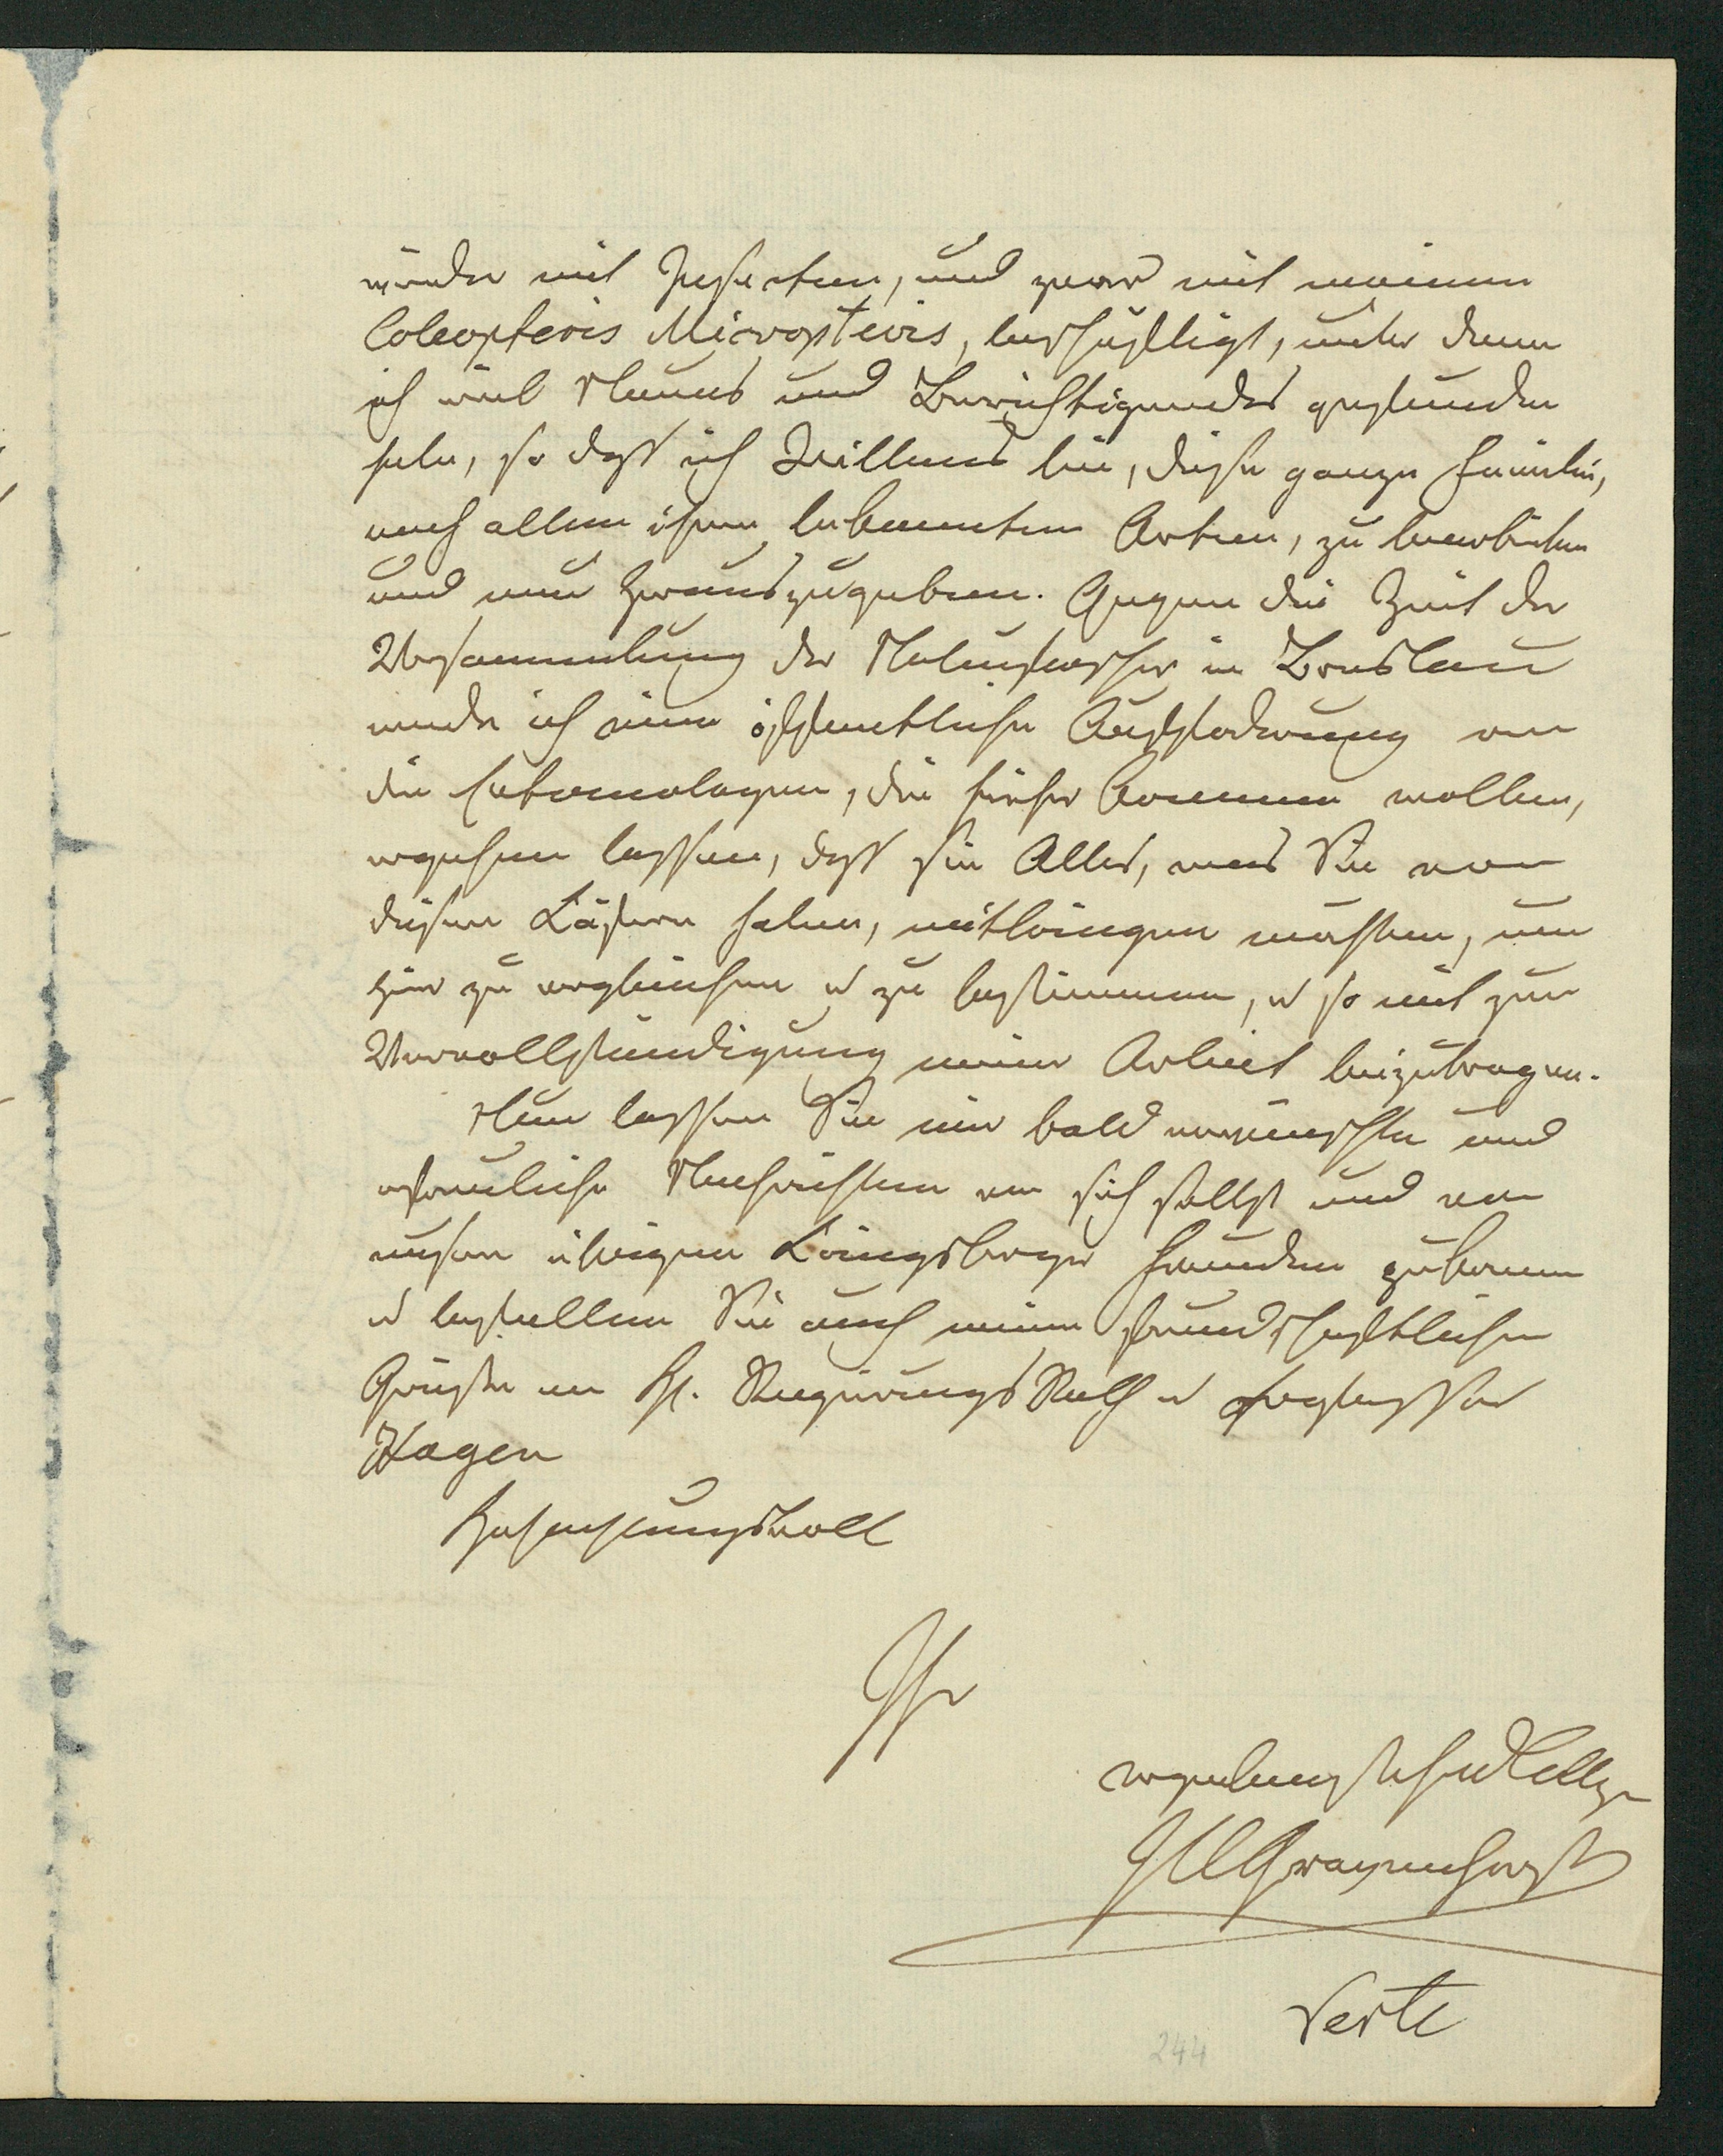 wieder mit Insecten, und zwar mit meinen
Coleopteris Micropteris, beschäftigt, unter denen
ich viel Neues und Berichtigendes gefunden
habe, so daß ich Willens bin, diese ganze Familie,
nach allen ihren bekannten Arten, zu bearbeiten
und neu herauszugeben. Gegen die Zeit der
Versammlung der Naturforscher in Breslau
werde ich eine öffentliche Aufforderung an
die Entomologen, die hieher kommen wollen,
ergehen lassen, daß sie Alles, was Sie von
diesen Käfern haben, mitbringen möchten, um
hier zu vergleichen u zu bestimmen, u so mit zur
Vervollständigung meiner Arbeit beizutragen.
Nun lassen Sie mir bald erwünschte und
erfreuliche Nachrichten von sich selbst und von
unsern übrigen Königsberger Freunden zukommen
u bestellen Sie auch meine freundschaftlichen
Grüße an H. Regierungs Rath u Professor
Hagen
Hochachtungsvoll
Ihr
ergebenster Freund Collge
JLCGravenhorst
Verte
244